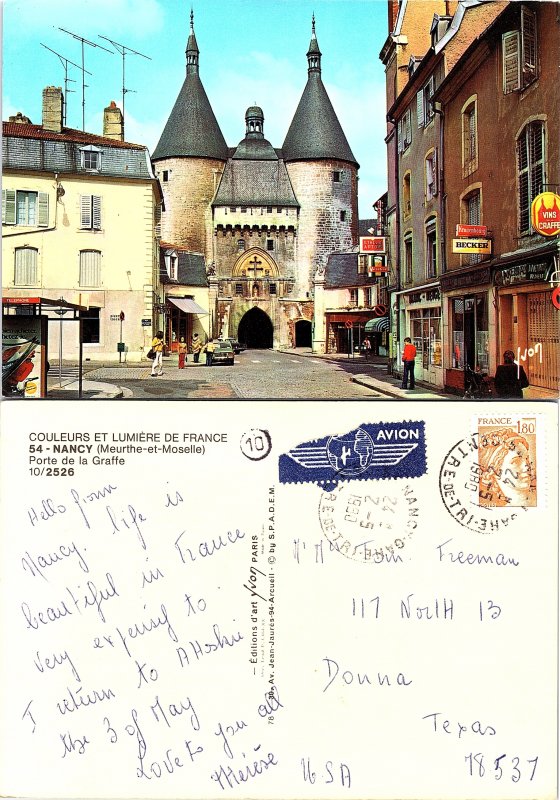 VINS
GRAFFE
BECKER
yvon
TELEPHONE
COULEURS ET LUMIÈRE DE FRANCE
54 - NANCY (Meurthe-et-Moselle)
Porte de la Graffe
10/2526
10
Hello from
Nancy. life is
beautiful in France
Very expensif to.
I return to
the 3 of May
Love to you all
Thérèse
78-80, Av. Jean-Jaurès-94-Arcueil - © by S.P.A.D.E.M.
— Éditions d'art yvon PARIS
AVION
NANCY-GARE
CENTRE-DE-TRI
24 H
2 - 5
1980
NANCY-GARE
CENTRE-DE-TRI
24 H
2 - 5
1980
1,80
M' M Tom Freeman
117 North 13
Donna
Texas
USA 78537